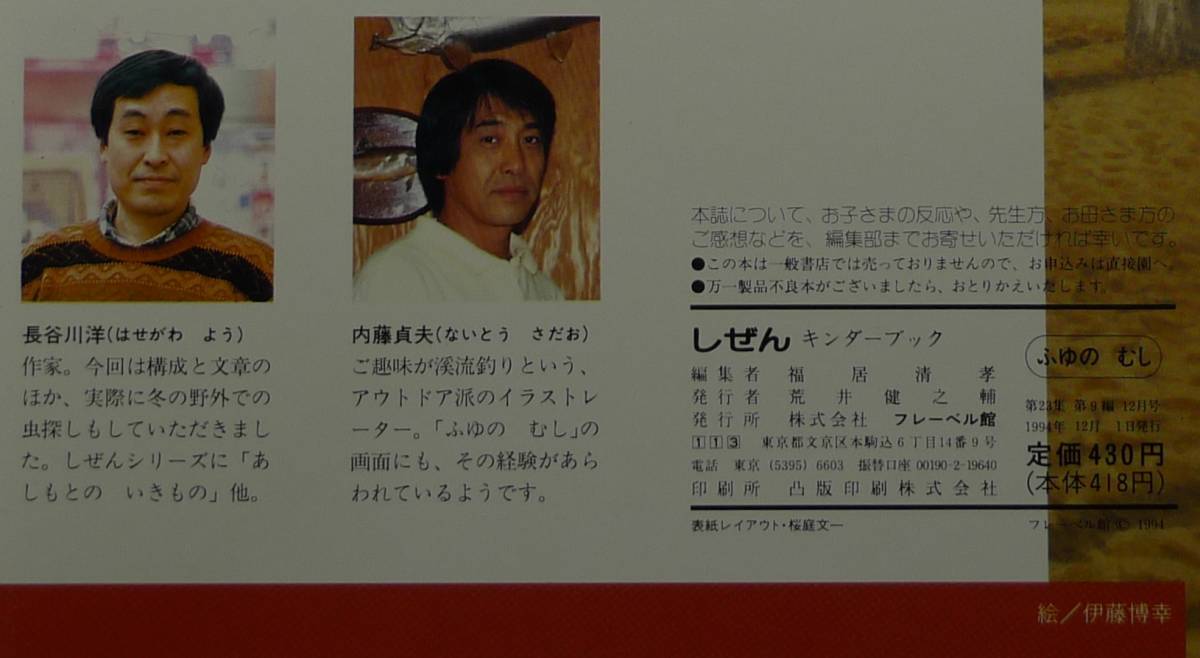 長谷川洋(はせがわ よう)
作家。今回は構成と文章の
ほか、実際に冬の野外での
虫探しもしていただきまし
た。しぜんシリーズに「あ
しもとの いきもの」他。
内藤貞夫(ないとう さだお)
ご趣味が渓流釣りという、
アウトドア派のイラストレ
ーター。「ふゆの むし」の
画面にも、その経験があら
われているようです。
本誌について、お子さまの反応や、先生方、お母さま方の
ご感想などを、編集部までお寄せいただければ幸いです。
●この本は一般書店では売っておりませんので、お申込みは直接園へ。
●万一製品不良本がございましたら、おとりかえいたします。
しぜん キンダーブック
編集者 福居清孝
発行者 荒井健之輔
発行所 株式会社 フレーベル館
113 東京都文京区本駒込6丁目14番9号
電話 東京 (5395) 6603 振替口座 00190-2-19640
印刷所 凸版印刷株式会社
ふゆの むし
第23集 第9編 12月号
1994年 12月 1日発行
定価430円
(本体418円)
表紙レイアウト・桜庭文一
フレーベル館 © 1994
絵/伊藤博幸